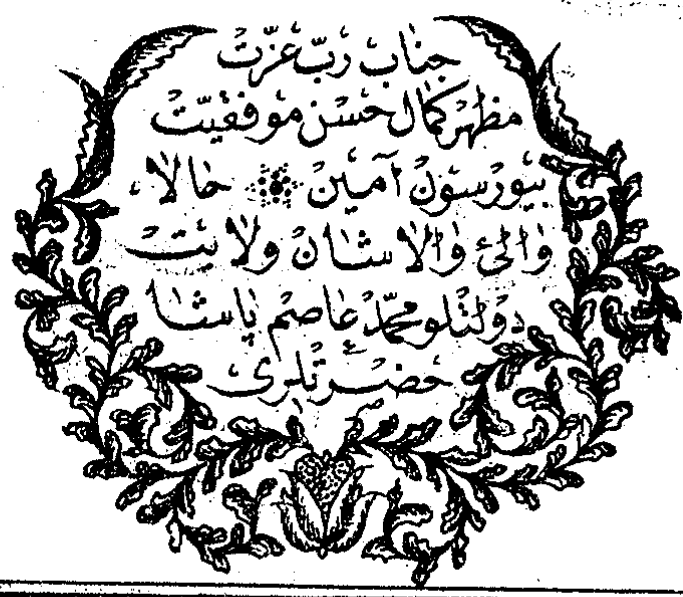 جناب رب عزّت
مظهر كمال حسن موفقيّت
بيورسون آمين حالا
والئ والاشان ولايت
دولتلو محمّد عاصم پاشا
حضرتلری